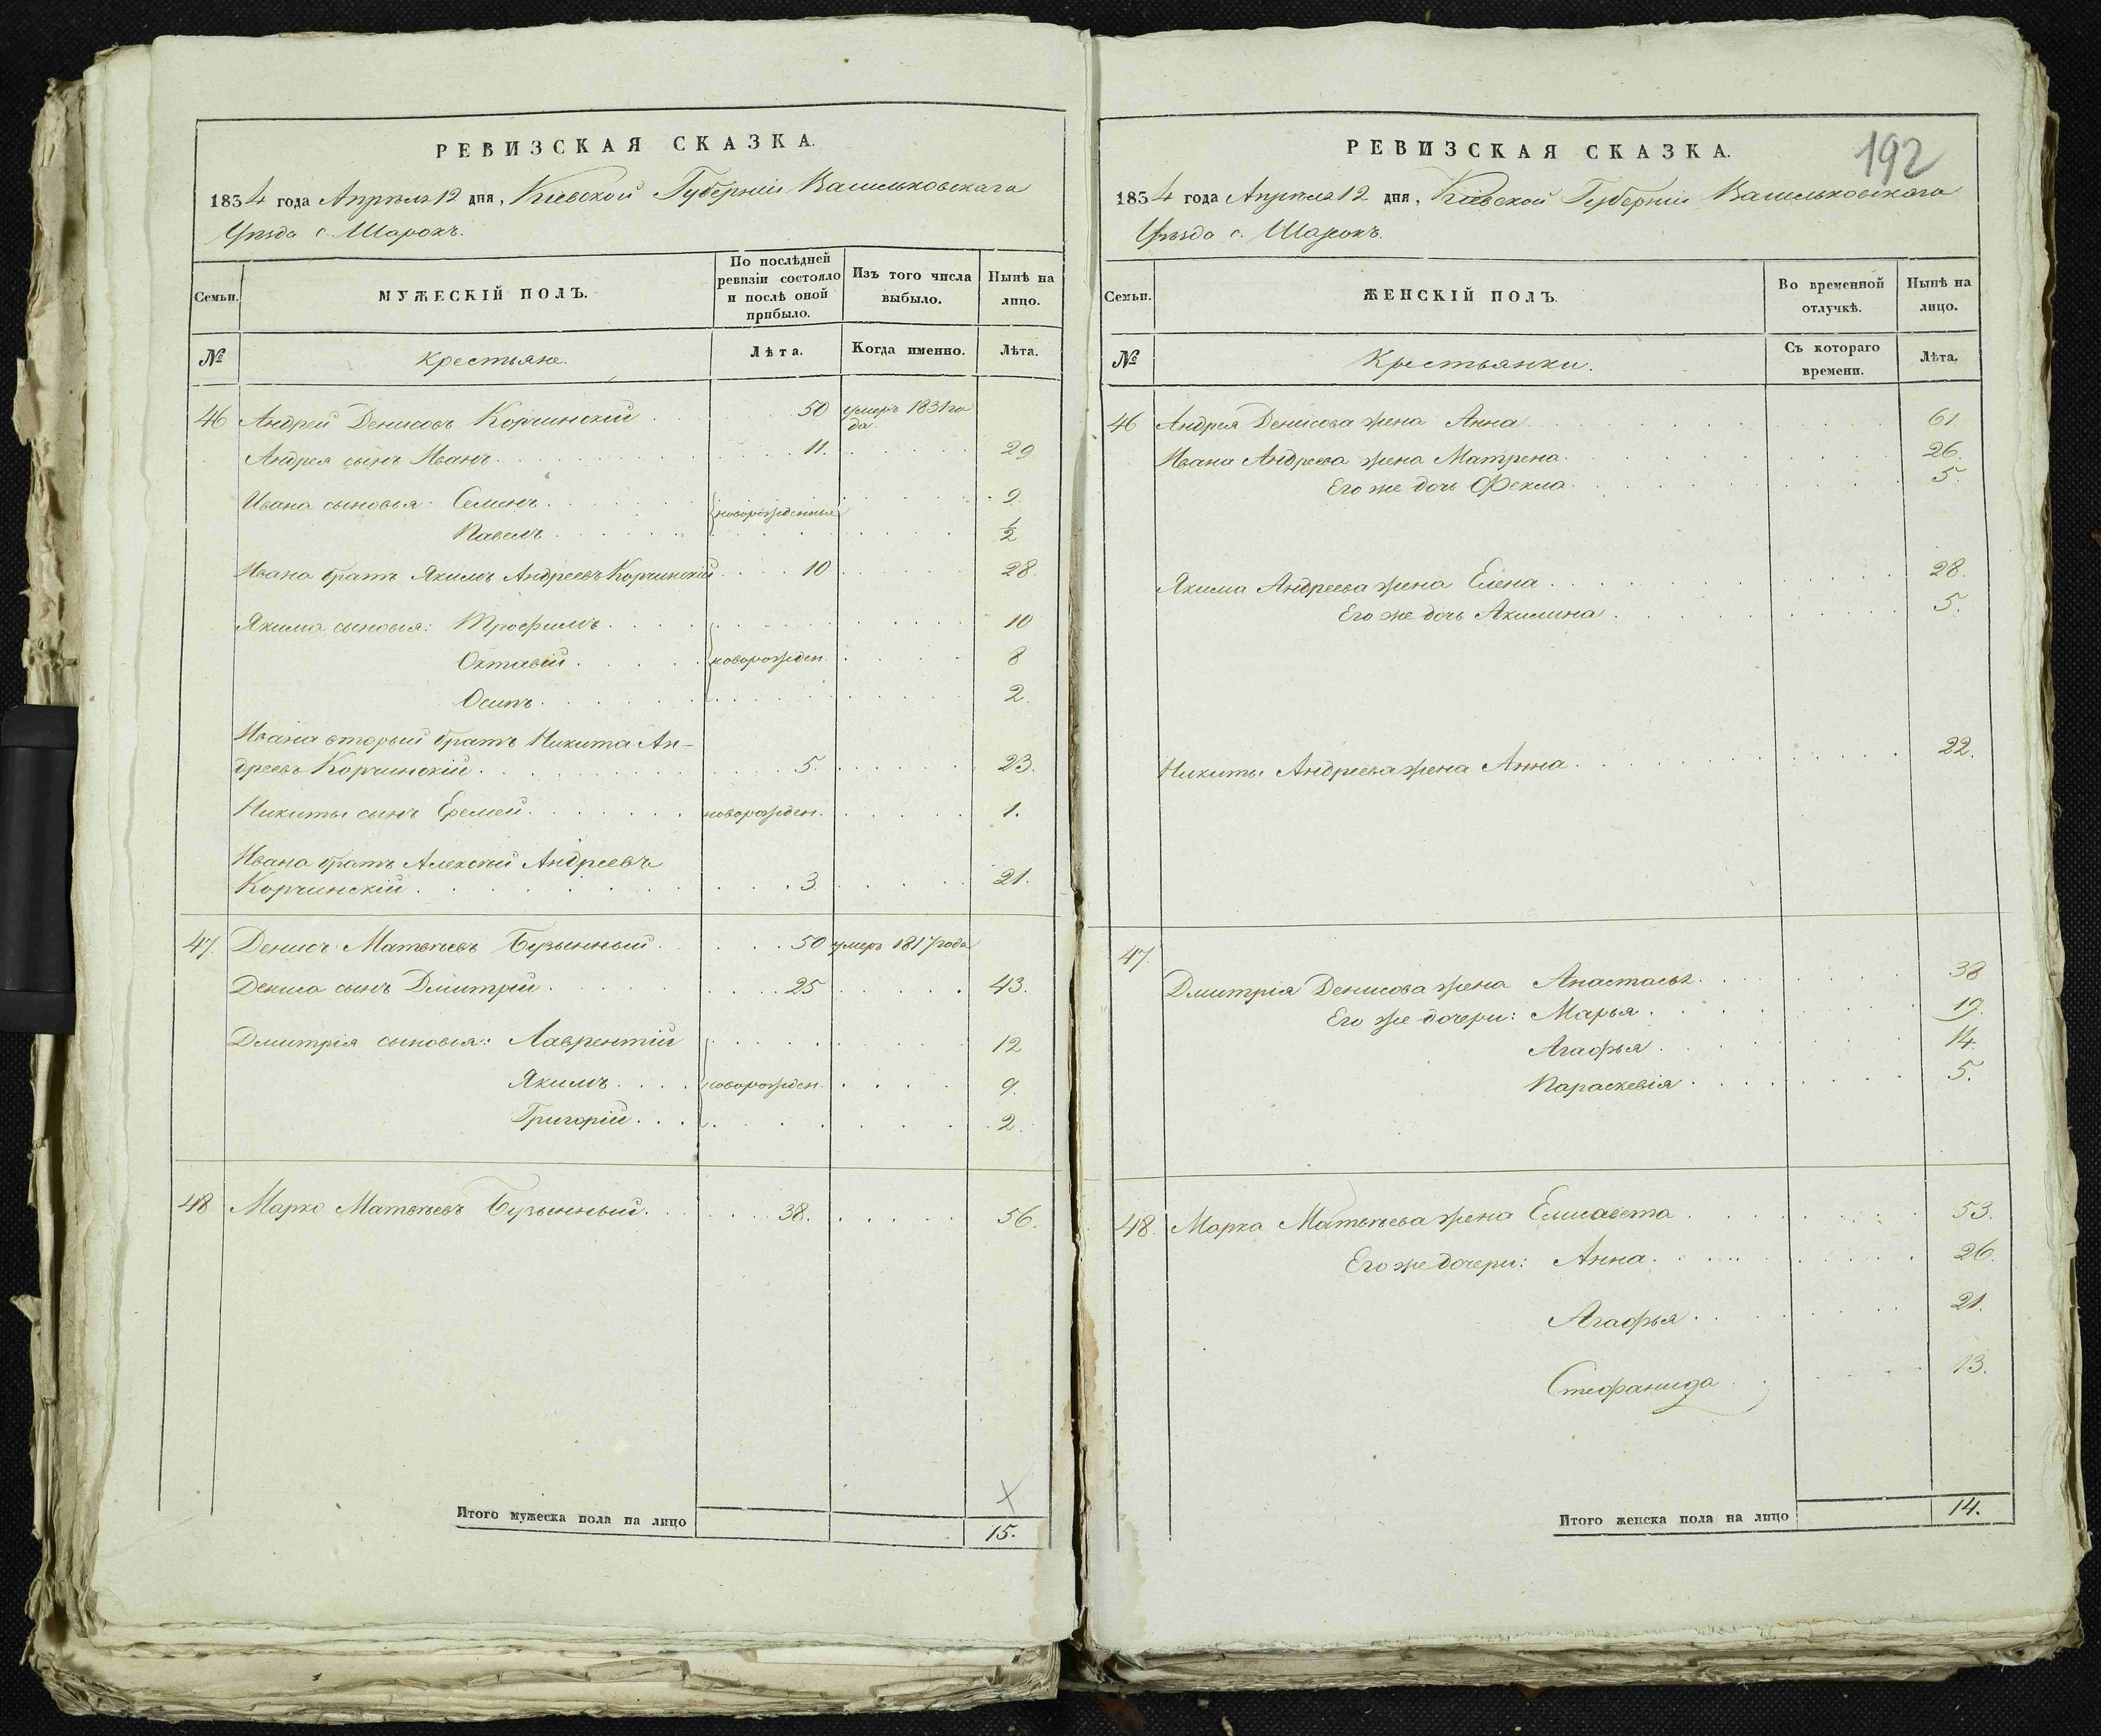 РЕВИЗСКАЯ СКАЗКА.
1834 года Апрѣля 12 дня, Кіевской Губерніи Васильковскаго
Уѣзда с. Шарокъ.
Семьи.
МУЖЕСКІЙ ПОЛЪ.
По послѣдней ревизіи состояло и послѣ оной прибыло.
Изъ того числа выбыло.
Нынѣ на лицо.
№
Крестьяне.
Лѣта.
Когда именно.
Лѣта.
46 Андрей Денисовъ Корчинскій . 50 умеръ 1831 го
да.
Андрея сынъ Иванъ 11. 29
Ивана сыновья: Семенъ 9
новорожденные
Павелъ ½
Ивана братъ Якимъ Андреевъ Корчинскій 10 28.
Якима сыновья: Трофимъ 10
Октавій новорожден. 8
Осипъ 2.
Ивана вторый братъ Никита Ан-
дреевъ Корчинскій 5. 23.
Никиты сынъ Еремей новорожден. 1.
Ивана братъ Алексѣй Андреевъ
Корчинскій 3 21.
47. Денисъ Матвѣевъ Бузынный 50 умеръ 1817 года
Дениса сынъ Дмитрій 25 43.
Дмитрія сыновья: Лаврентій 12
Якимъ новорожден. 9.
Григорій 2.
48 Марко Матвѣевъ Бузынный 38. 56.
Итого мужеска пола на лицо 15.
192
РЕВИЗСКАЯ СКАЗКА.
1834 года Апрѣля 12 дня, Кіевской Губерніи Васильковскаго
Уѣзда с. Шарокъ.
Семьи.
ЖЕНСКІЙ ПОЛЪ.
Во временной отлучкѣ.
Нынѣ на лицо.
№
Крестьянки.
Съ котораго времени.
Лѣта.
46 Андрея Денисова жена Анна 61
Ивана Андреева жена Матрена 26.
Его же дочь Фекла 5.
Якима Андреева жена Елена 28.
Его же дочь Акилина 5.
Никиты Андреева жена Анна 22.
47.
Дмитрія Денисова жена Анастасья 38
Его же дочери: Марья 19.
Агафья 14.
Параскевія 5.
48. Марка Матвѣева жена Елисавета 53.
Его же дочери: Анна 26.
Агафья 21.
Стефанида 13.
Итого женска пола на лицо 14.